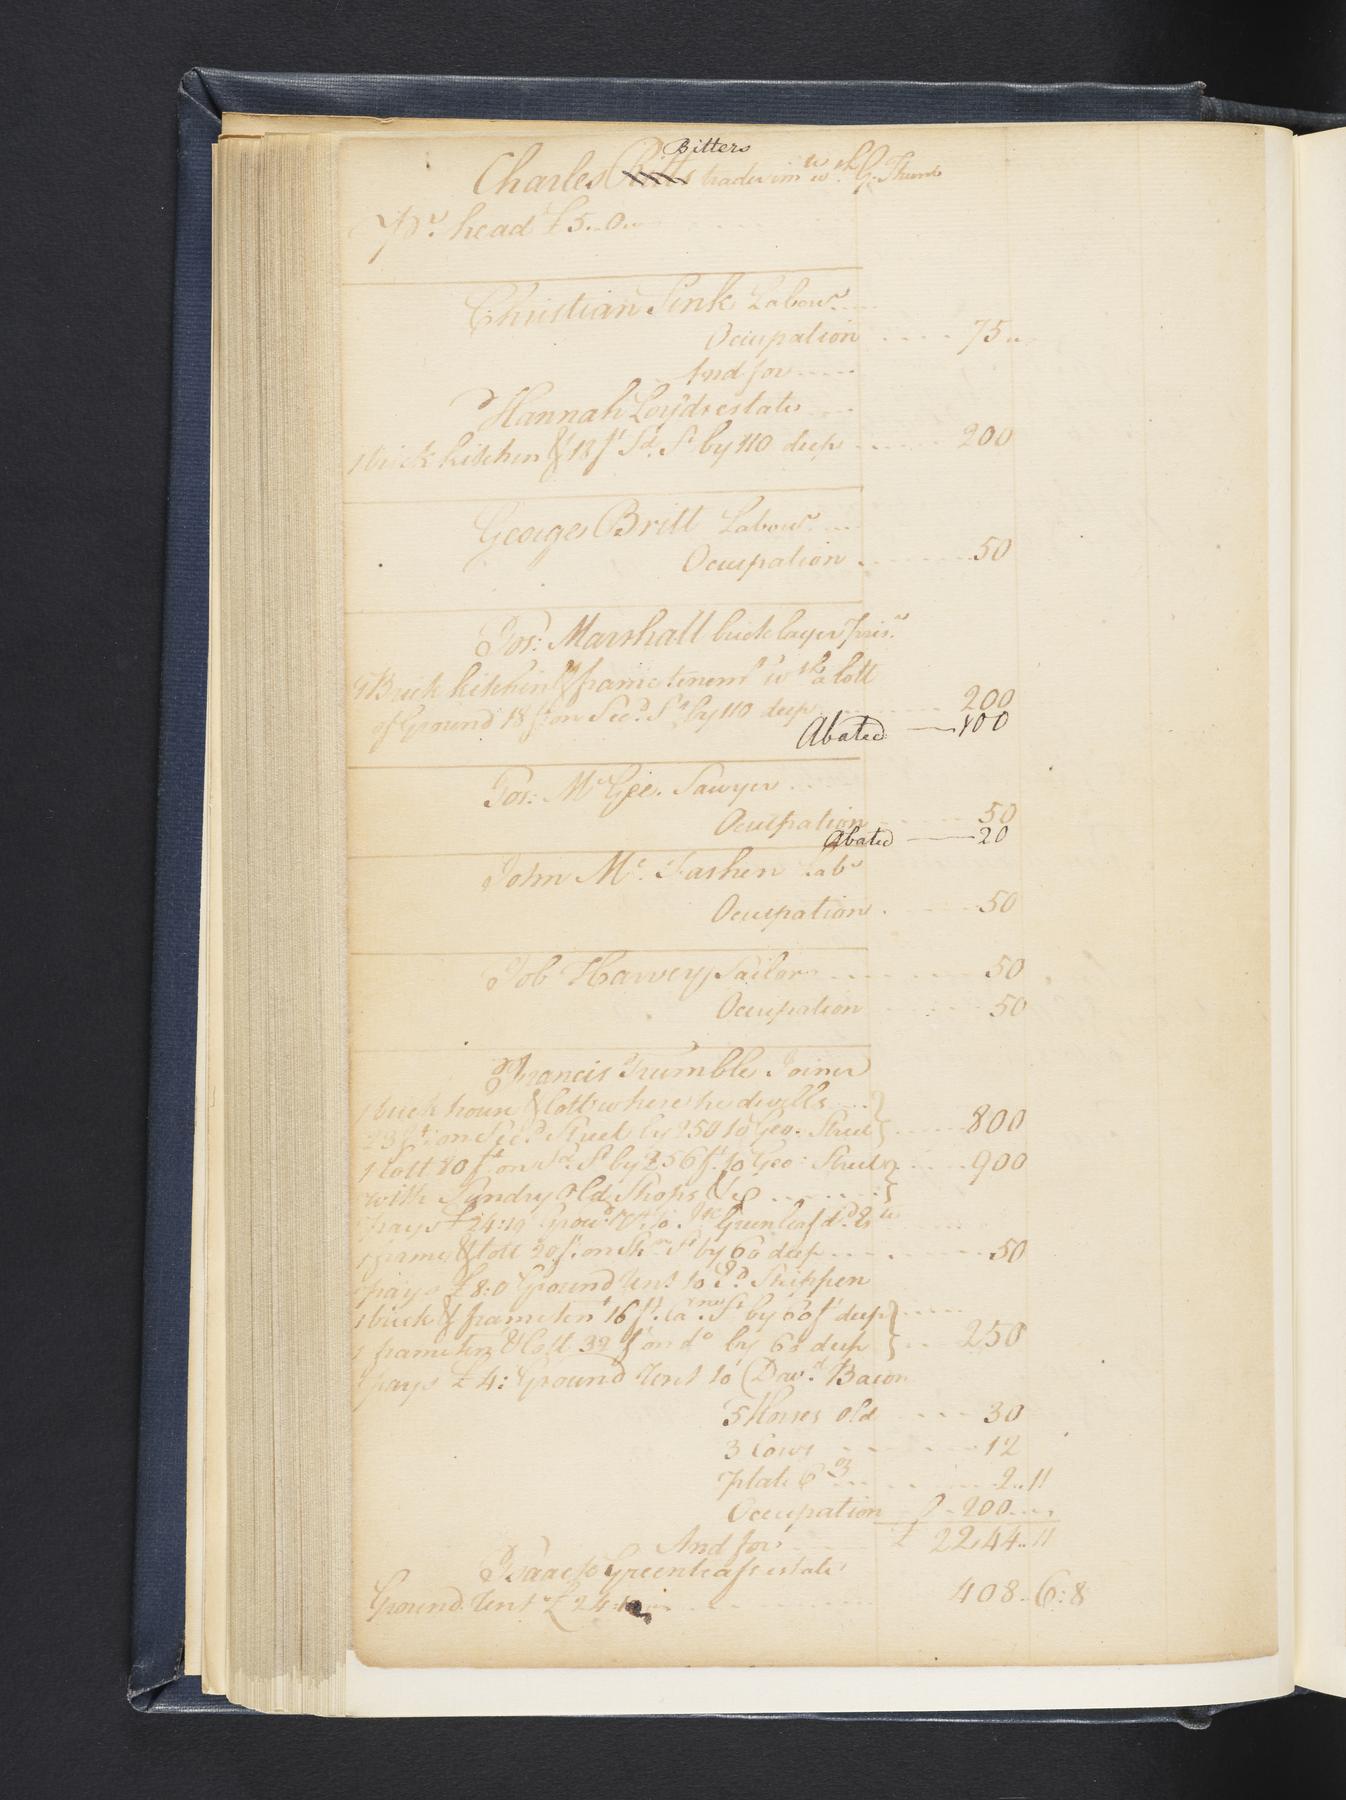 Bitters
Charles Ritts trader in w:th G: Thumb
Pr. head £5..0..
Christian Sink Labour
Ocupation .... 75..
And for .....
Hannah Loyds estate ....
1 brick kitchen & 18 ft Sd. St by 110 deep ...... 200
George Britt Labour ....
Ocupation ...... 50
Jos: Marshall brick layer
1 Brick kitchin & frame tenemt wth a lott
of Ground 18 ft: on Secd. St by 110 deep ...... 200
Abated — 100
Jos: McGee. Sawyer ....
Ocupation ...... 50
Abated — 20
John Mc. Fashen Labr
Ocupation ...... 50
Job Harvey Sailor ...... 50
Ocupation ...... 50
Francis Trumble Joiner
1 brick house & lott where he dwells ....
23 ft: on Secd Street by 250 to Geo. Street ..... 800
1 lott 80 ft on Sd. St by 256 ft to Geo: Street ..... 900
with Sundry Old Shops &c ......
pays £24:10 Growd Rt. to Isc Greenleaf
1 frame & lott 20 ft: on St by 60 deep ...... 50
pays £8:0 Ground Rent to Ed. Shippen
1 brick & frame tent 16 ft. by 60 ft deep .....
1 frame & lott 32 ft on do by 68 deep ... 250
pays £4: Ground Rent to Davd. Bacon
5 Horses Old .... 30
3 Cows ...... 12
Plate 6 oz ...... 2..11
Ocupation .. 200....
£ 2244..11
And for .....
Isaac Greenleafs estate
Ground Rent £24: ...... 408..6:8